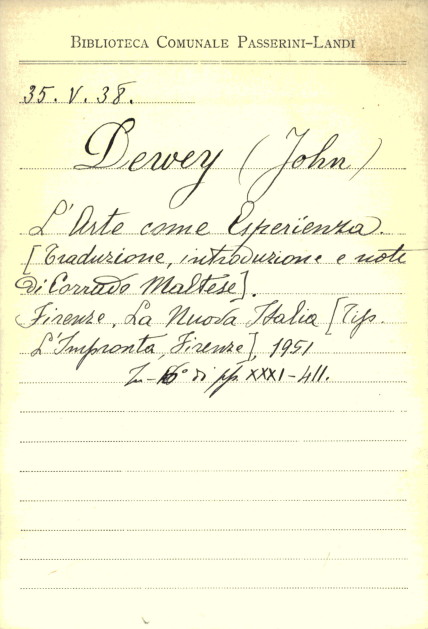 BIBLIOTECA COMUNALE PASSERINI-LANDI
35. V. 38.
Dewey (John)
L'Arte come Esperienza.
[Traduzione, introduzione e note
di Corrado Maltese].
Firenze, La Nuova Italia [Tip.
L'Impronta, Firenze], 1951
In-16° di pp. XXXI-411.